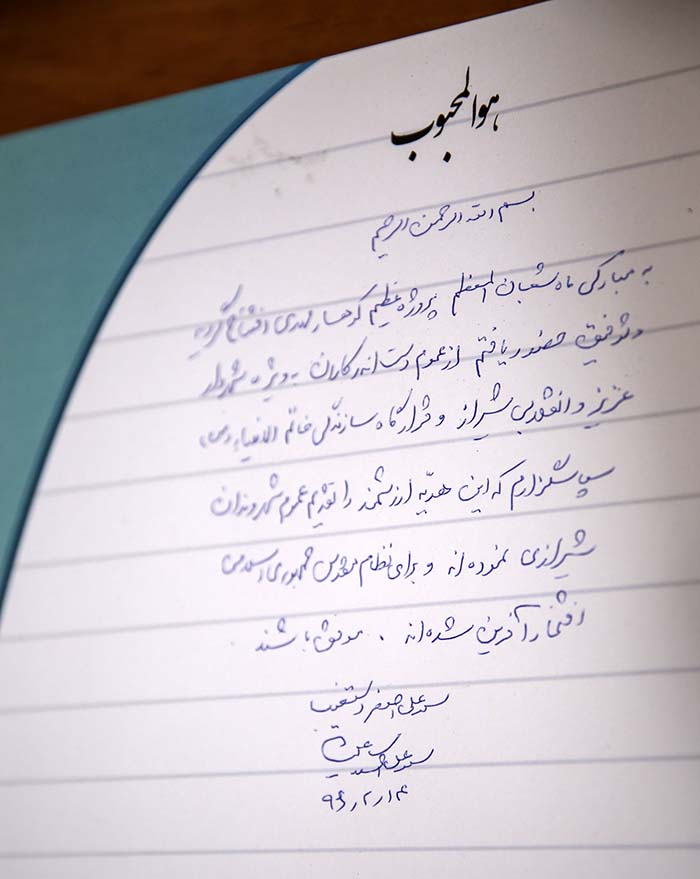 هوالمحبوب
بسم الله الرحمن الرحیم
به مبارکی ماه شعبان المعظم پروژه عظیم کوهسار مهدی افتتاح گردید
و توفیق حضور یافتم از عموم دست اندرکاران به ویژه شهردار
عزیز و انقلابی شیراز و قرارگاه سازندگی خاتم الانبیاء (ص)
سپاسگزارم که این هدیّه ارزشمند را تقدیم عموم شهروندان
شیرازی نموده اند و برای نظام مقدس جمهوری اسلامی
افتخار آفرین شده اند . موفق باشند
سید علی اصغر دستغیب
۹۶٫۲٫۱۴